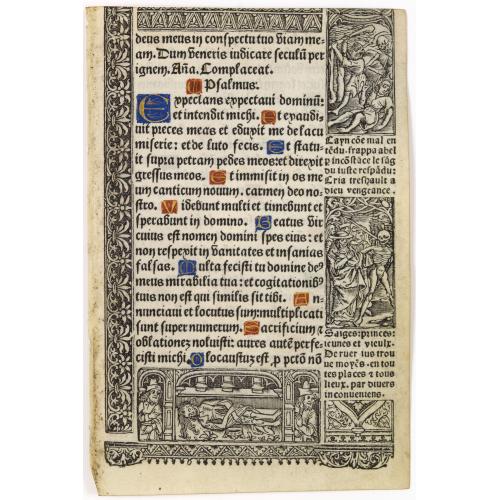 deus meus in conspectu tuo viam me-
am. Dum veneris iudicare seculū per
ignem. Aña. Complaceat.
Psalmus.
Expectans expectavi dominū:
et intendit michi. Et exaudi-
vit preces meas et eduxit me de lacu
miserie: et de luto fecis. Et statu-
it supra petram pedes meos: et direxit
gressus meos. Et immisit in os me
um canticum novum. carmen deo no-
stro. Videbunt multi et timebunt et
sperabunt in domino. Beatus vir
cuius est nomen domini spes eius: et
non respexit in vanitates et insanias
falsas. Multa fecisti tu domine deꝰ
meus mirabilia tua: et cogitationibꝰ
tuis non est qui similis sit tibi. An-
nunciavi et locutus sum: multiplicati
sunt super numerum. Sacrificium et
oblationez noluisti: aures autē perfe-
cisti michi. Olocaustuz est, p pctō nō
Cayn cōe mal en
tēdu. frappa abel
p incōstāce le sāg
du iuste respādu:
Cria treshault a
dieu vengeance.
Saiges: princes:
ieunes et vieulx.
De ruer ius trou
ue moyēs. en tou
tes places ⁊ tous
lieux. par divers
inconveniens.